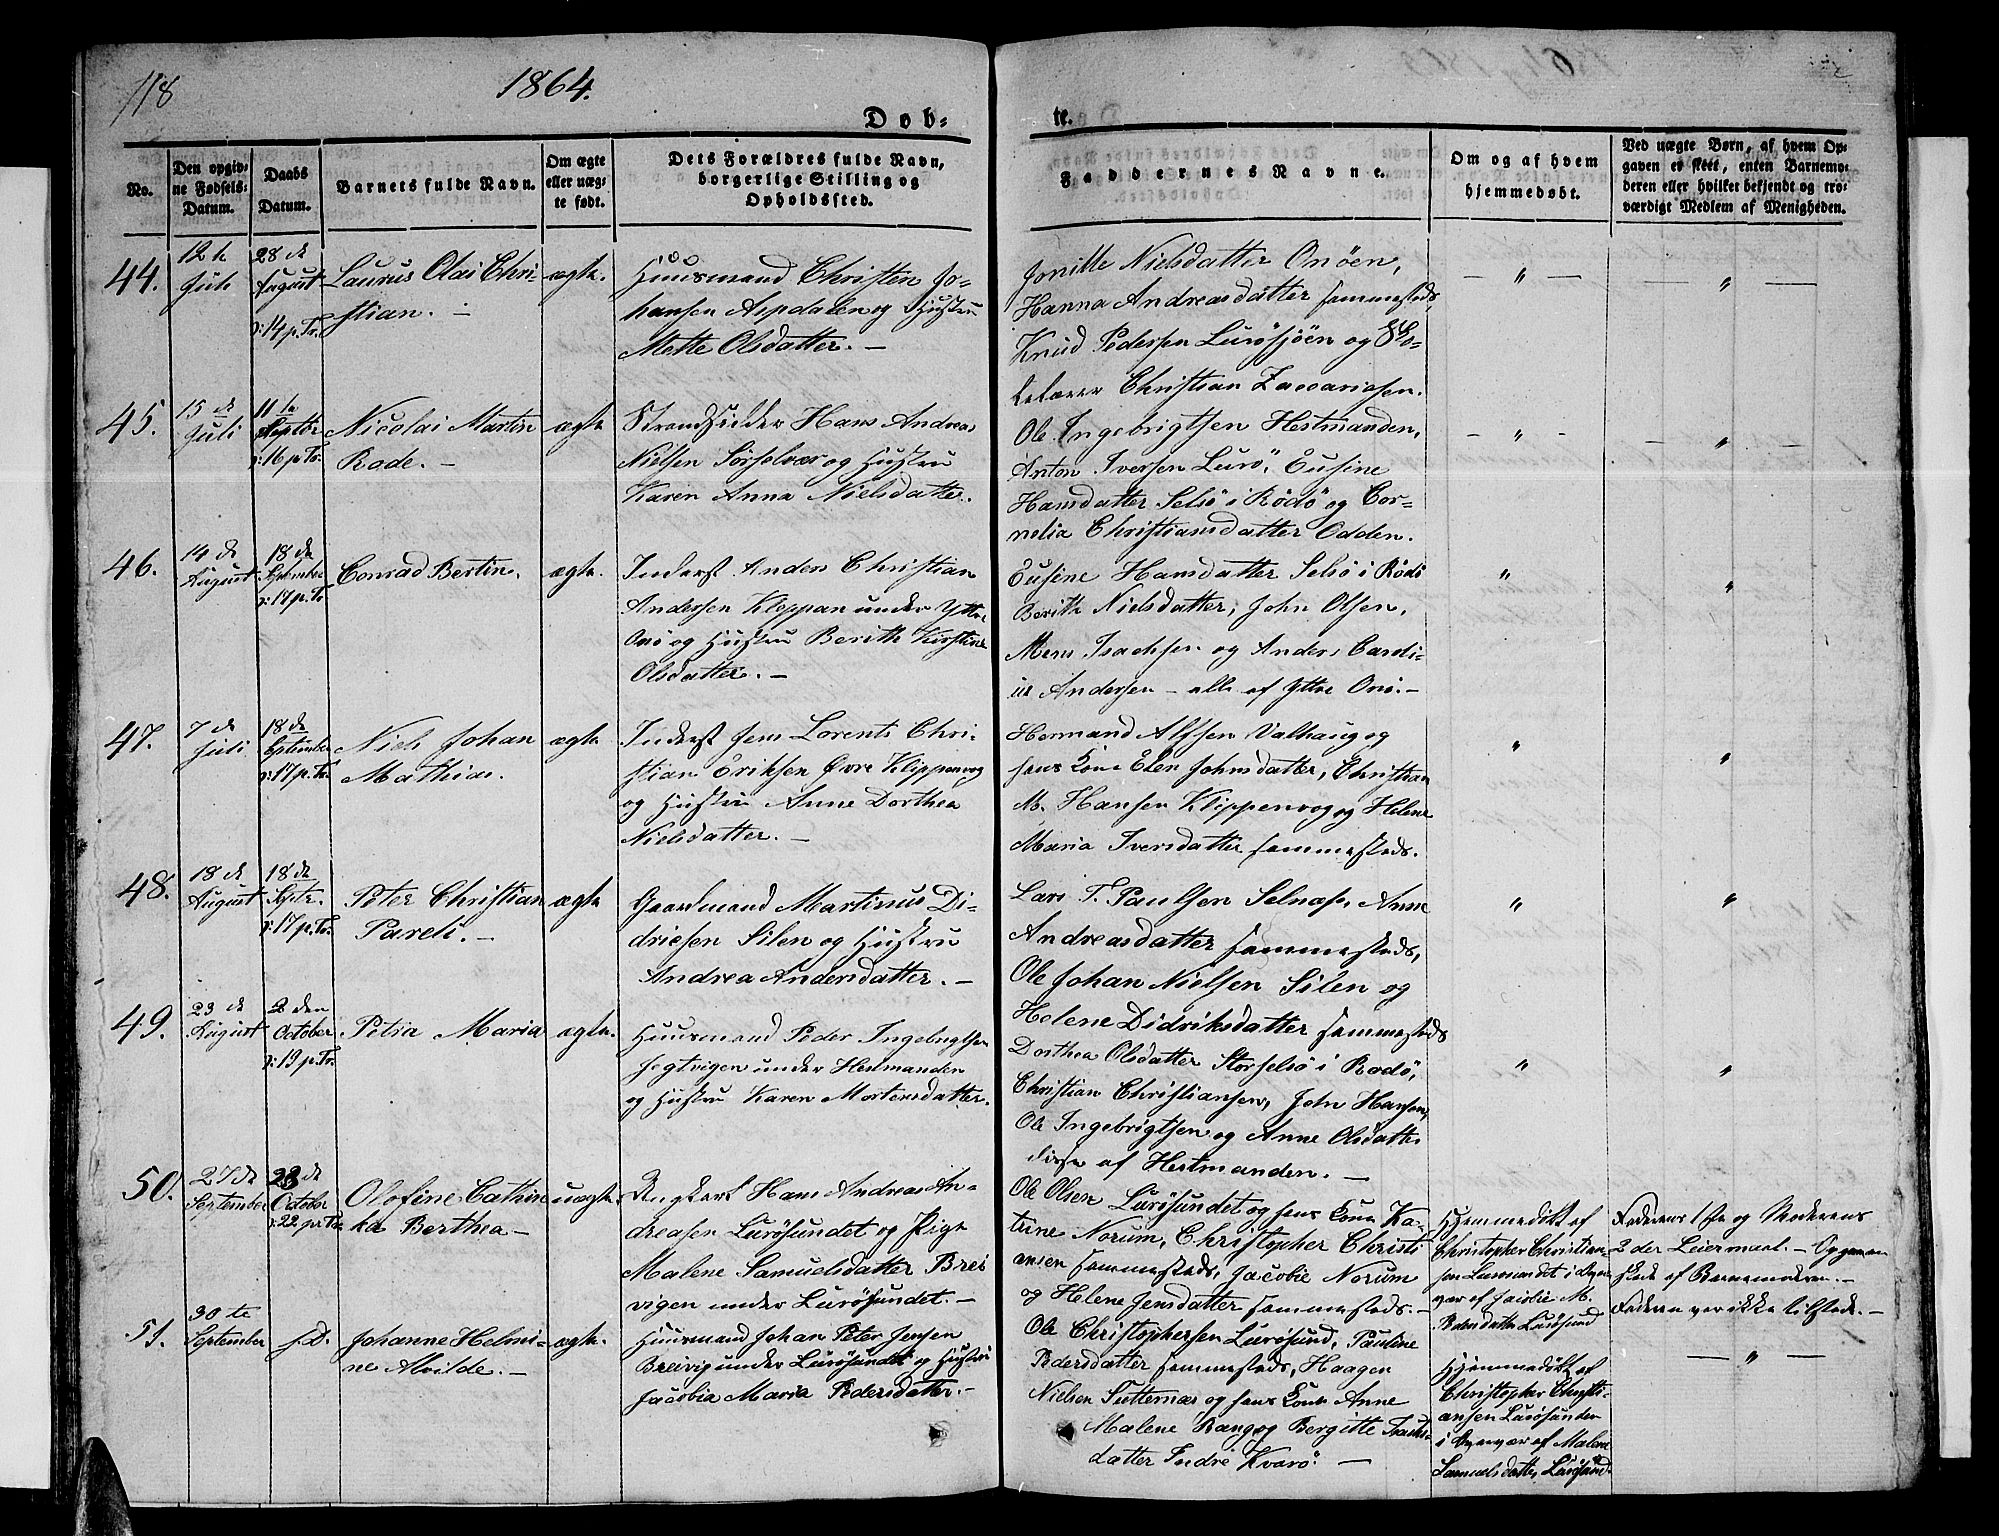 118
1864.
Døb-
te.
No.
Den opgiv-
ne Fødsels-
Datum.
Daabs
Datum.
Barnets fulde Navn.
Om ægte
eller uæg-
te født.
Dets Forældres fulde Navn,
borgerlige Stilling og
Opholdssted.
Faddernes Navne.
Om og af hvem
hjemmedøbt.
Ved uægte Børn, af hvem Op-
gaven er skeet, enten Barnemo-
deren eller hvilket bekjendt og tro-
værdigt Medlem af Menigheden.
44.
12te
Juli
28de
August
ɔ: 14 p. Tr.
Laurus Olai Chri-
stian. –
ægte.
Huusmand Christen Jo-
hansen Aspdalen og Hustru
Mette Olsdatter. –
Jonille Nielsdatter Onøen,
Hanna Andreasdatter sammesteds,
Knud Pedersen Lurøsjøen og Sko-
lelærer Christian Zaccariasen.
– " –
– " –
45.
15de
Juli
11te
Septbr
ɔ: 16 p. Tr.
Nicolai Martin
Rode. –
ægte
Strandsidder Hans Andreas
Nielsen Sørsolvær og Hustru
Karen Anna Nielsdatter.
Ole Ingebrigtsen Hestmanden,
Anton Iversen Lurø, Eusine
Hansdatter Selsø i Rødø og Cor-
nelia Christiansdatter Odden.
– " –
"
46.
14de
August
18de
September
ɔ: 17 p. Tr.
Conrad Bertin.
ægte.
Inderst Anders Christian
Andersen Kleppan under Yttre
Onø og Hustru Berith Kirstine
Olsdatter. –
Eusine Hansdatter Selsø i Rødø
Berith Nielsdatter, John Olsen,
Mons Isachsen og Anders Cardi-
us Andersen – alle af Yttre Onø. –
"
"
47.
7de
Juli
18de
September
ɔ: 17 p. Tr.
Niels Johan
Mathias.
ægte
Inderst Jens Lorents Chri-
stian Eriksen Øvre Klippenvog
og Hustru Anne Dorthea
Nielsdatter. –
Hermand Alfsen Valhaug og
hans Kone Elen Johnsdatter, Christian
M. Hansen Klippenvog og Helene
Maria Iversdatter sammesteds.
"
"
48.
18de
August
18de
Septr.
ɔ: 17 p. Tr.
Peter Christian
Pareli. –
ægte
Gaardmand Martinus Di-
driksen Silen og Hustru
Andrea Andersdatter. –
Lars T. Paulsen Selnæs, Anne
Andreasdatter sammesteds,
Ole Johan Nielsen Silen og
Helene Didriksdatter sammesteds
"
"
49.
23de
August
2den
October
ɔ: 19 p. Tr.
Petra Maria
ægte.
Huusmand Peder Ingebrigtsen
Jegtvigen under Hestmanden
og Hustru Karen Mortensdatter.
Dorthea Olsdatter Storselsø i Rødø,
Christian Christiansen, John Hansen,
Ole Ingebrigtsen og Anne Olsdatter
disse af Hestmanden. –
"
"
50.
27de
September
23de
October
ɔ: 22 p. Tr.
Olofine Cathin
ka Berthea –
uægte.
Ungkarl Hans Andreas An-
dreasen Lurøsundet og Pige
Malene Samuelsdatter Brei
vigen under Lurøsundet. –
Ole Olsen Lurøsundet og hans Kone Ka-
trine Norum, Christopher Christi
ansen sammesteds, Jacobie Norum
og Helene Jensdatter sammesteds. –
Hjemmedøbt af
Christopher Christian-
sen Lurøsundet i Over-
vær af Jacobie M.
Pedersdatter Lurøsund
Faderens 1ste og Moderens
2det Leiermaal. – Opgaven
skeet af Barnemoderen. –
Faderen var ikke tilstede. –
51.
30te
September
s. D.
Johanne Helmi-
ne Alvilde. –
ægte.
Huusmand Johan Peter Jensen
Breivig under Lurøsundet og Hustru
Jacobia Maria Pedersdatter. –
Ole Christophersen Lurøsund, Pauline
Pedersdatter sammesteds, Haagen
Nielsen Sætternæs og hans Kone Anne
Malene Bang og Bergitte Isachs-
datter Indre Kvarø. –
Hjemmedøbt af
Christopher Christi-
ansen Lurøsundet
i Overvær af Malene
Samuelsdatter Lurøsund.
– " –